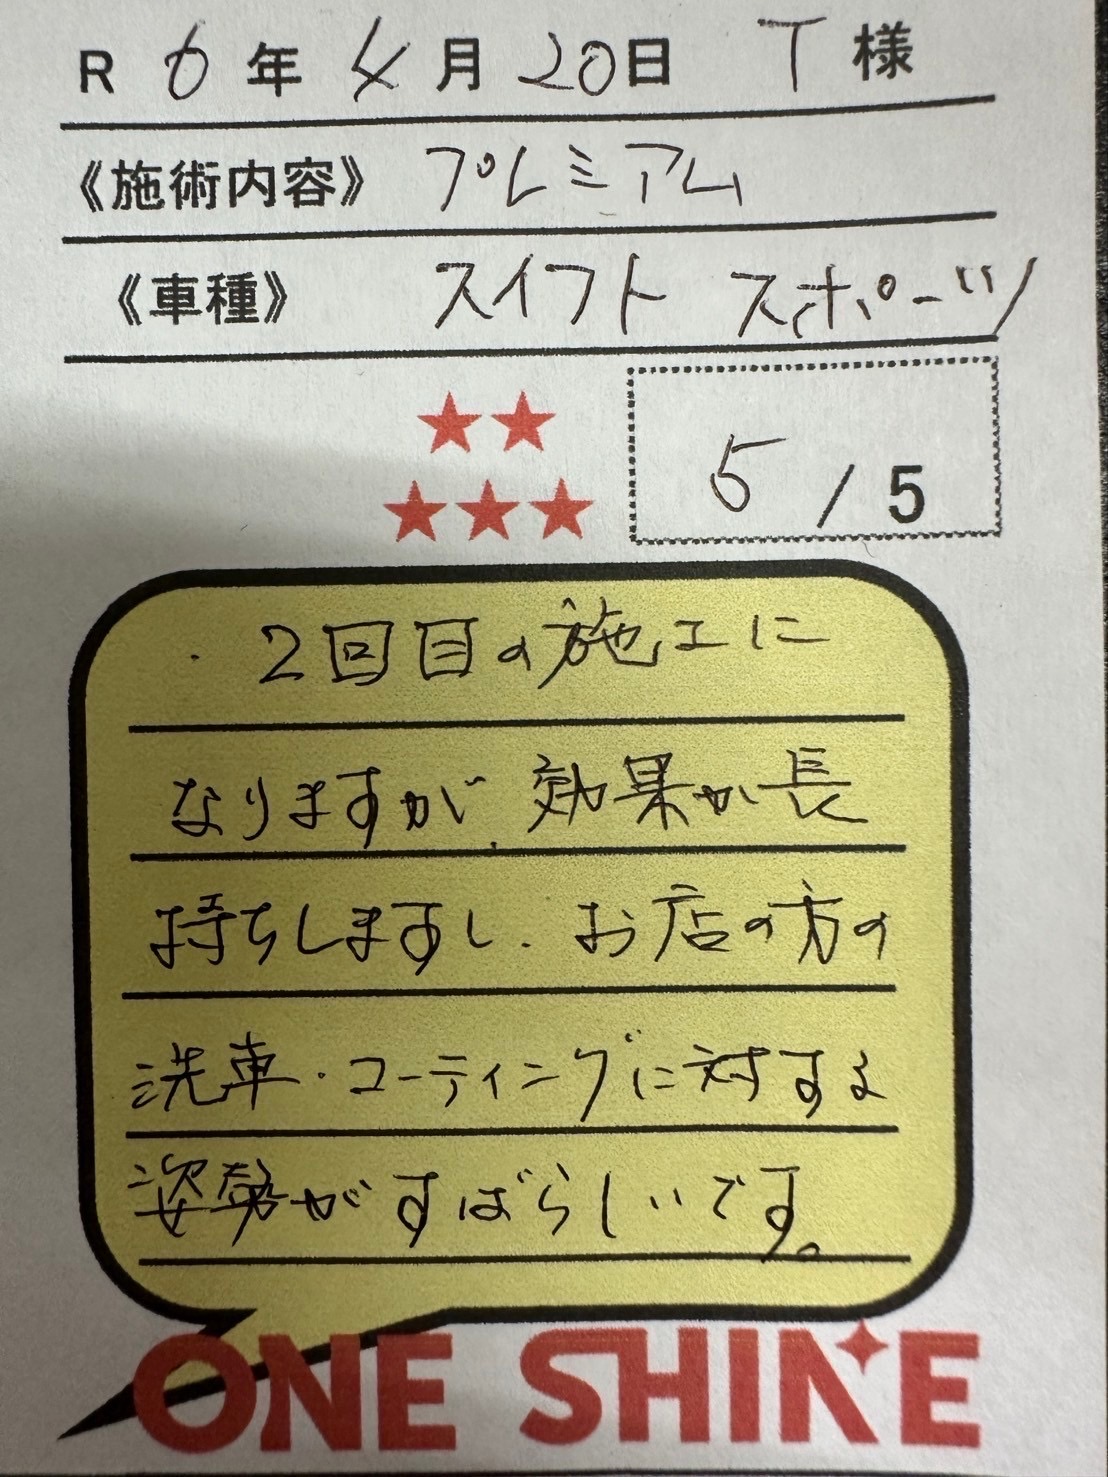 R 6年 4月 20日 T 様
《施術内容》 プレミアム
《車種》 スイフト スポーツ
★★
★★★
5 / 5
2回目の施工に
なりますが、効果が長
持ちしますし、お店の方の
洗車・コーティングに対する
姿勢がすばらしいです。
ONE SHINE